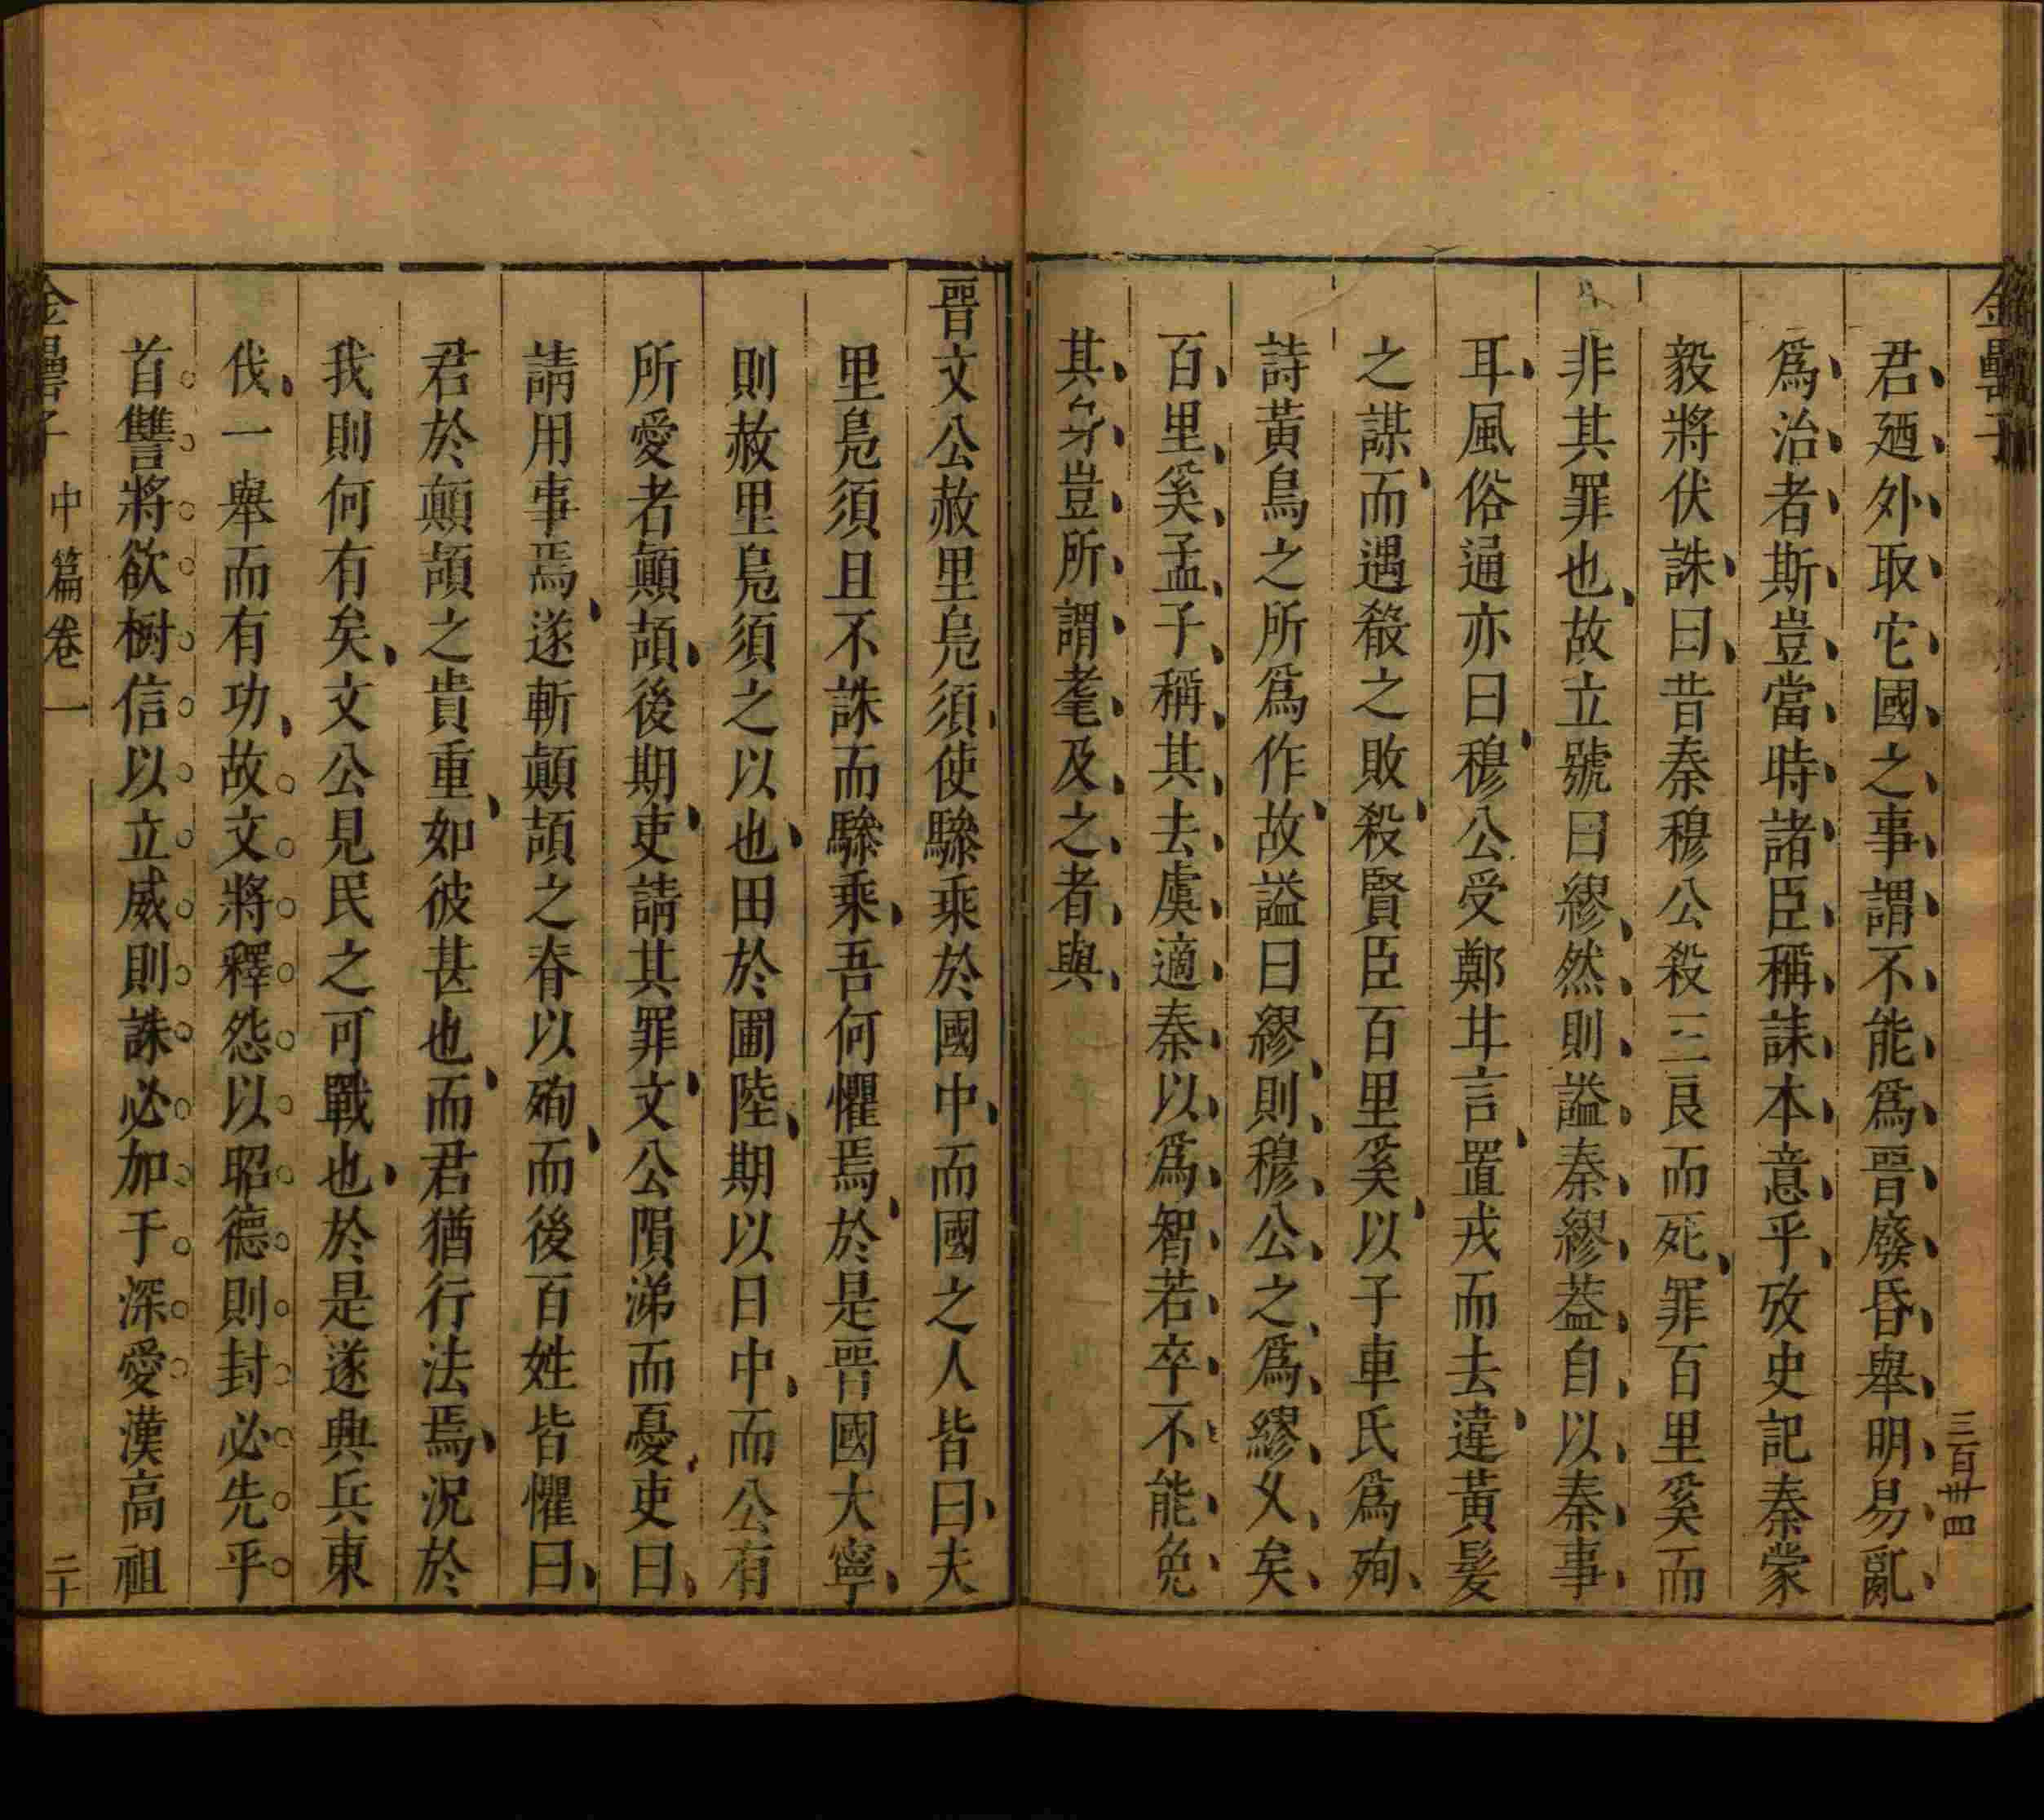 金罍子
三百卌四
君廼外取它國之事謂不能爲晉廢昏舉明易亂
爲治者斯豈當時諸臣稱誄本意乎攷史記秦蒙
毅將伏誅曰昔秦穆公殺三良而死罪百里奚而
非其罪也故立號曰繆然則謚秦繆葢自以秦事
耳風俗通亦曰穆公受鄭甘言置戎而去違黃髪
之謀而遇殽之敗殺賢臣百里奚以子車氏爲殉
詩黃鳥之所爲作故謚曰繆則穆公之爲繆乆矣
百里奚孟子稱其去虞適秦以爲智若卒不能免
其身豈所謂耄及之者與
晉文公赦里鳬須使驂乘於國中而國之人皆曰夫
里鳬須且不誅而驂乘吾何懼焉於是晉國大寧
則赦里鳬須之以也田於圃陸期以日中而公有
所愛者顛頡後期吏請其罪文公隕涕而憂吏曰
請用事焉遂斬顛頡之脊以殉而後百姓皆懼曰
君於顛頡之貴重如彼甚也而君猶行法焉況於
我則何有矣文公見民之可戰也於是遂興兵東
伐一舉而有功故文將釋怨以昭德則封必先乎
首讐將欲樹信以立威則誅必加于深愛漢高祖
金罍子
中篇卷一
二十